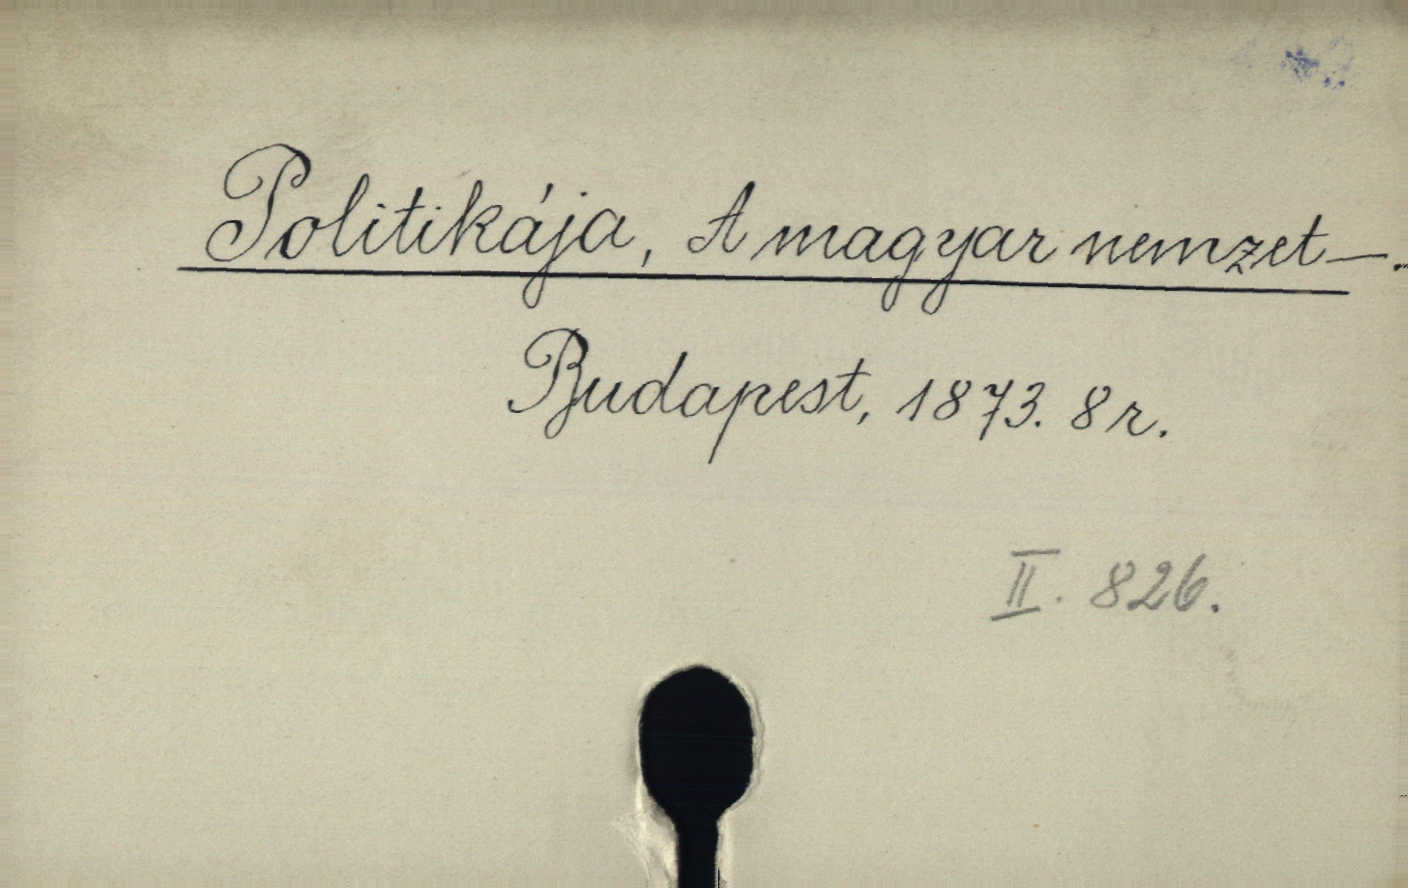 Politikája, A magyar nemzet—.
Budapest, 1873. 8r.
II. 826.